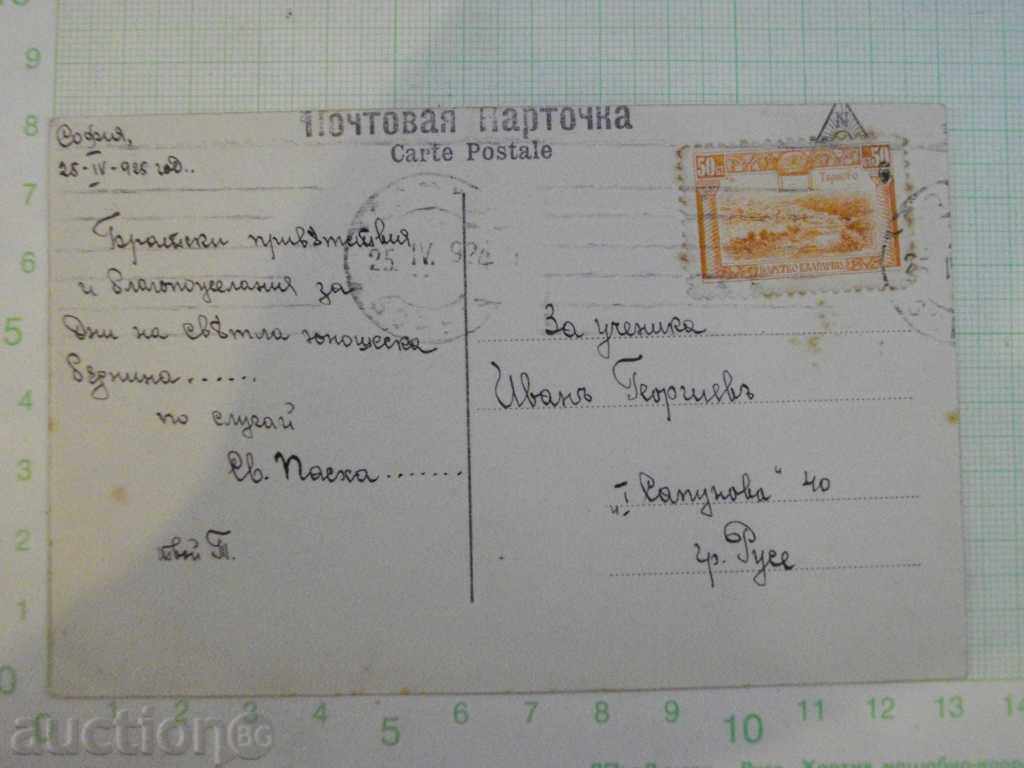 Почтовая Карточка
Carte Postale
София,
25-IV-925 год..
Братски приветствия
и благопожелания за
Дни на свѣтла юношеска
веднина......
по случай
Св. Пасха.......
твой Т.
25. IV. 92
50 50
Търново
ЦАРСТВО БЪЛГАРИЯ
N
За ученика
Иванъ Георгиевъ
„I Сапунова“ 40
гр. Русе
9
8
7
6
5
4
3
2
1
0
0 1 2 3 4 5 6 7 8 9 10 11 12 13 14
auction BG